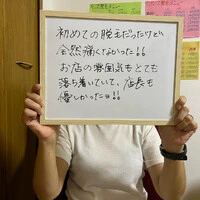 初めての脱毛だったけど
全然痛くなかった!!
お店の雰囲気もとても
落ち着いていて、店長も
優しかったです!!